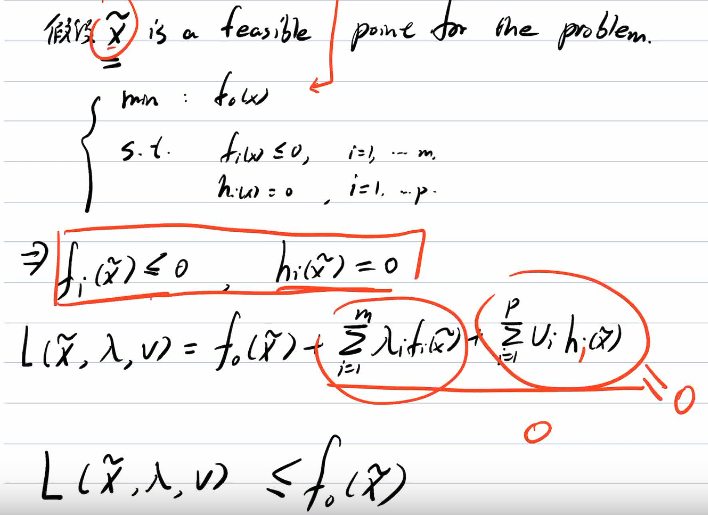 假设 x̃ is a feasible point for the problem.
min : f₀(x)
s.t. fᵢ(x) ≤ 0, i=1, ... m.
hᵢ(x) = 0, i=1. ... p.
⇒ fᵢ(x̃) ≤ 0, hᵢ(x̃) = 0
L(x̃, λ, ν) = f₀(x̃) + ∑ᵢ₌₁ᵐ λᵢfᵢ(x̃) + ∑ᵢ₌₁ᵖ νᵢhᵢ(x̃)
= 0
0
L(x̃, λ, ν) ≤ f₀(x̃)